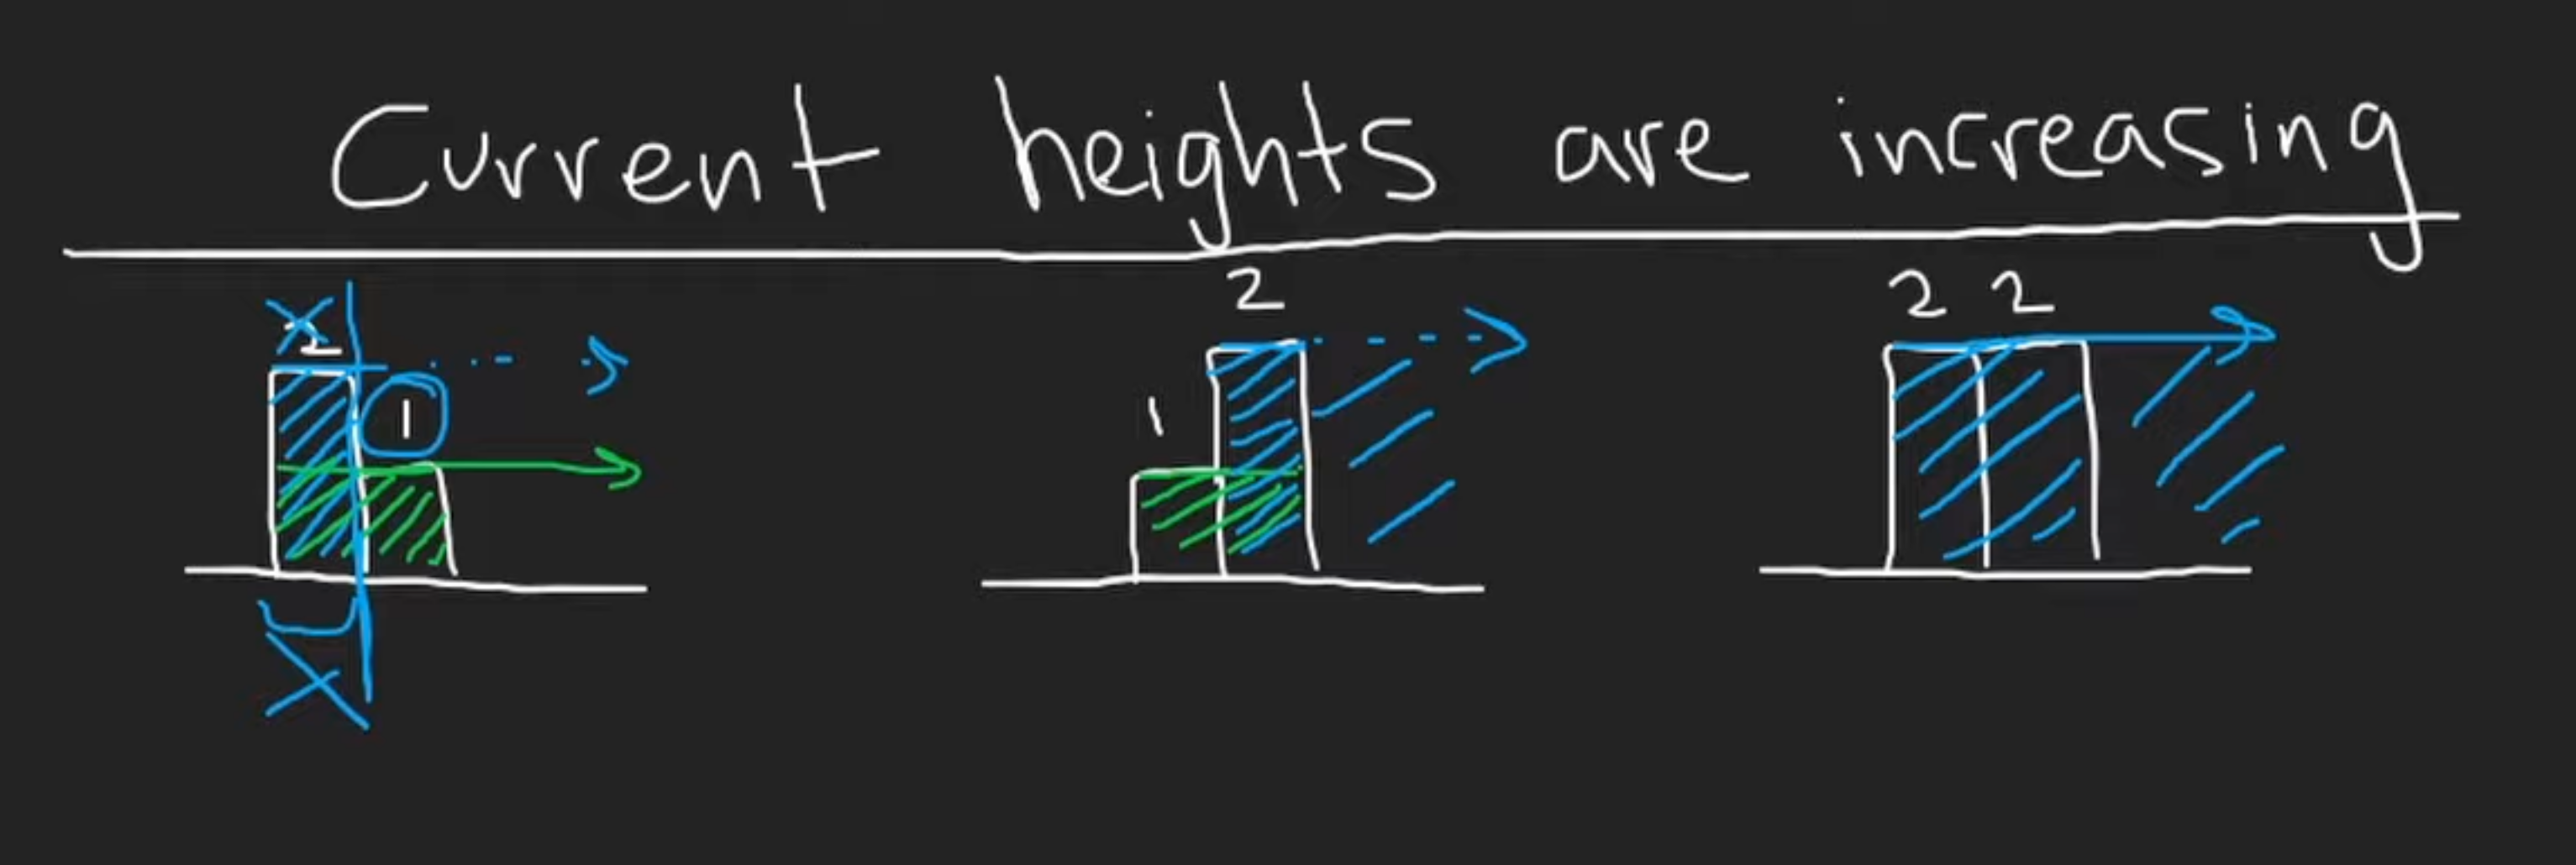 Current heights are increasing
2 1
2
1
2 2